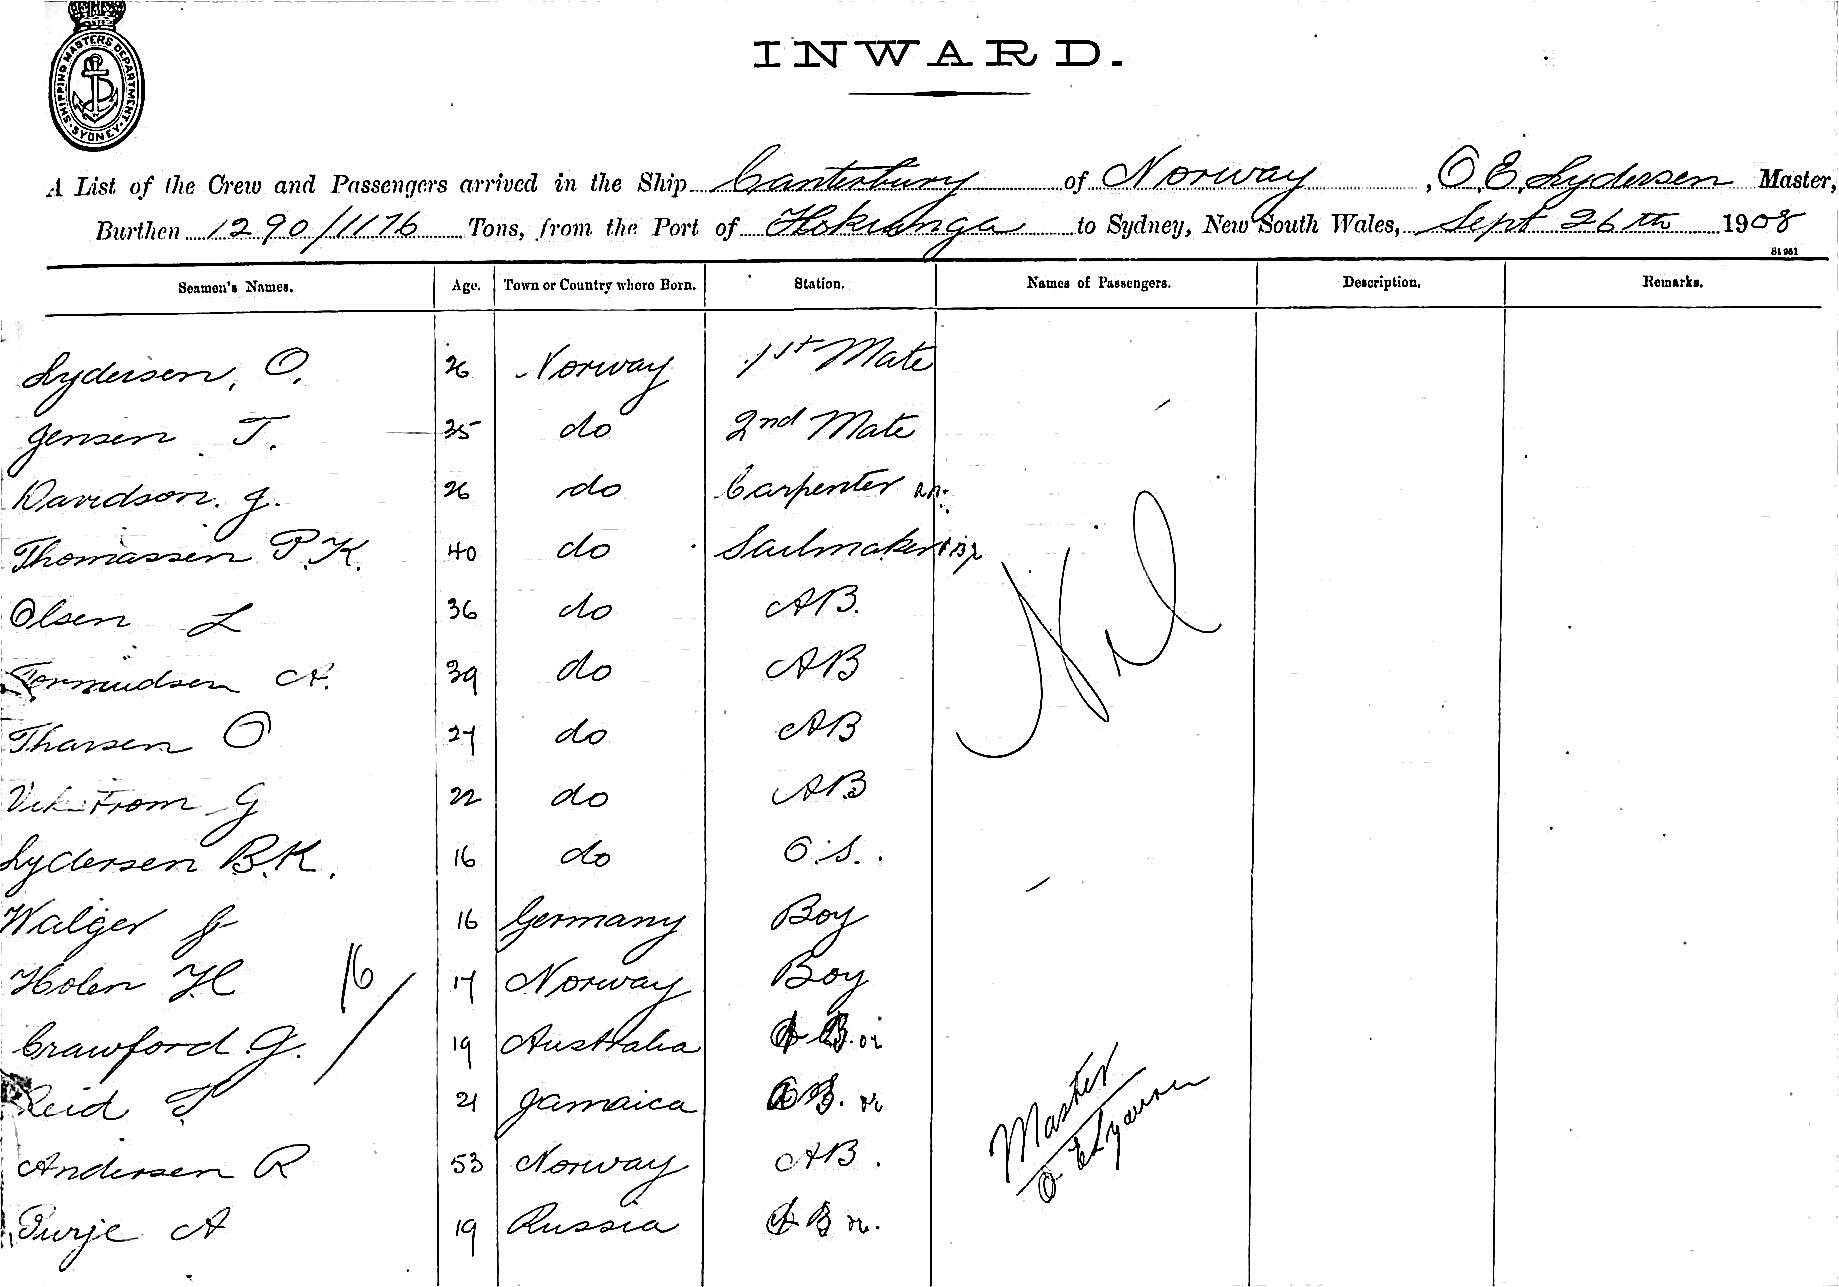 SHIPPING MASTERS DEPARTMENT
SYDNEY
INWARD.
A List of the Crew and Passengers arrived in the Ship Canterbury of Norway, O. E. Lydersen Master,
Burthen 1290/1176 Tons, from the Port of Hokianga to Sydney, New South Wales, Sept 26th 1908
Seamen's Names. Age. Town or Country where Born. Station. Names of Passengers. Description. Remarks.
Lydersen, O. 26 Norway 1st Mate
Jensen T. 35 do 2nd Mate
Davidson. J. 26 do Carpenter
Thomassen P.K. 40 do Sailmaker
Olsen L 36 do AB.
A. 39 do AB
Tharsen O 27 do AB
G 22 do AB
Lydersen B.K. 16 do O.S.
Walger J 16 Germany Boy
Holen H 17 Norway Boy
16
Crawford G. 19 Australia
Reid 21 Jamaica
Andersen R 53 Norway AB.
Purje A 19 Russia
Nil
Master